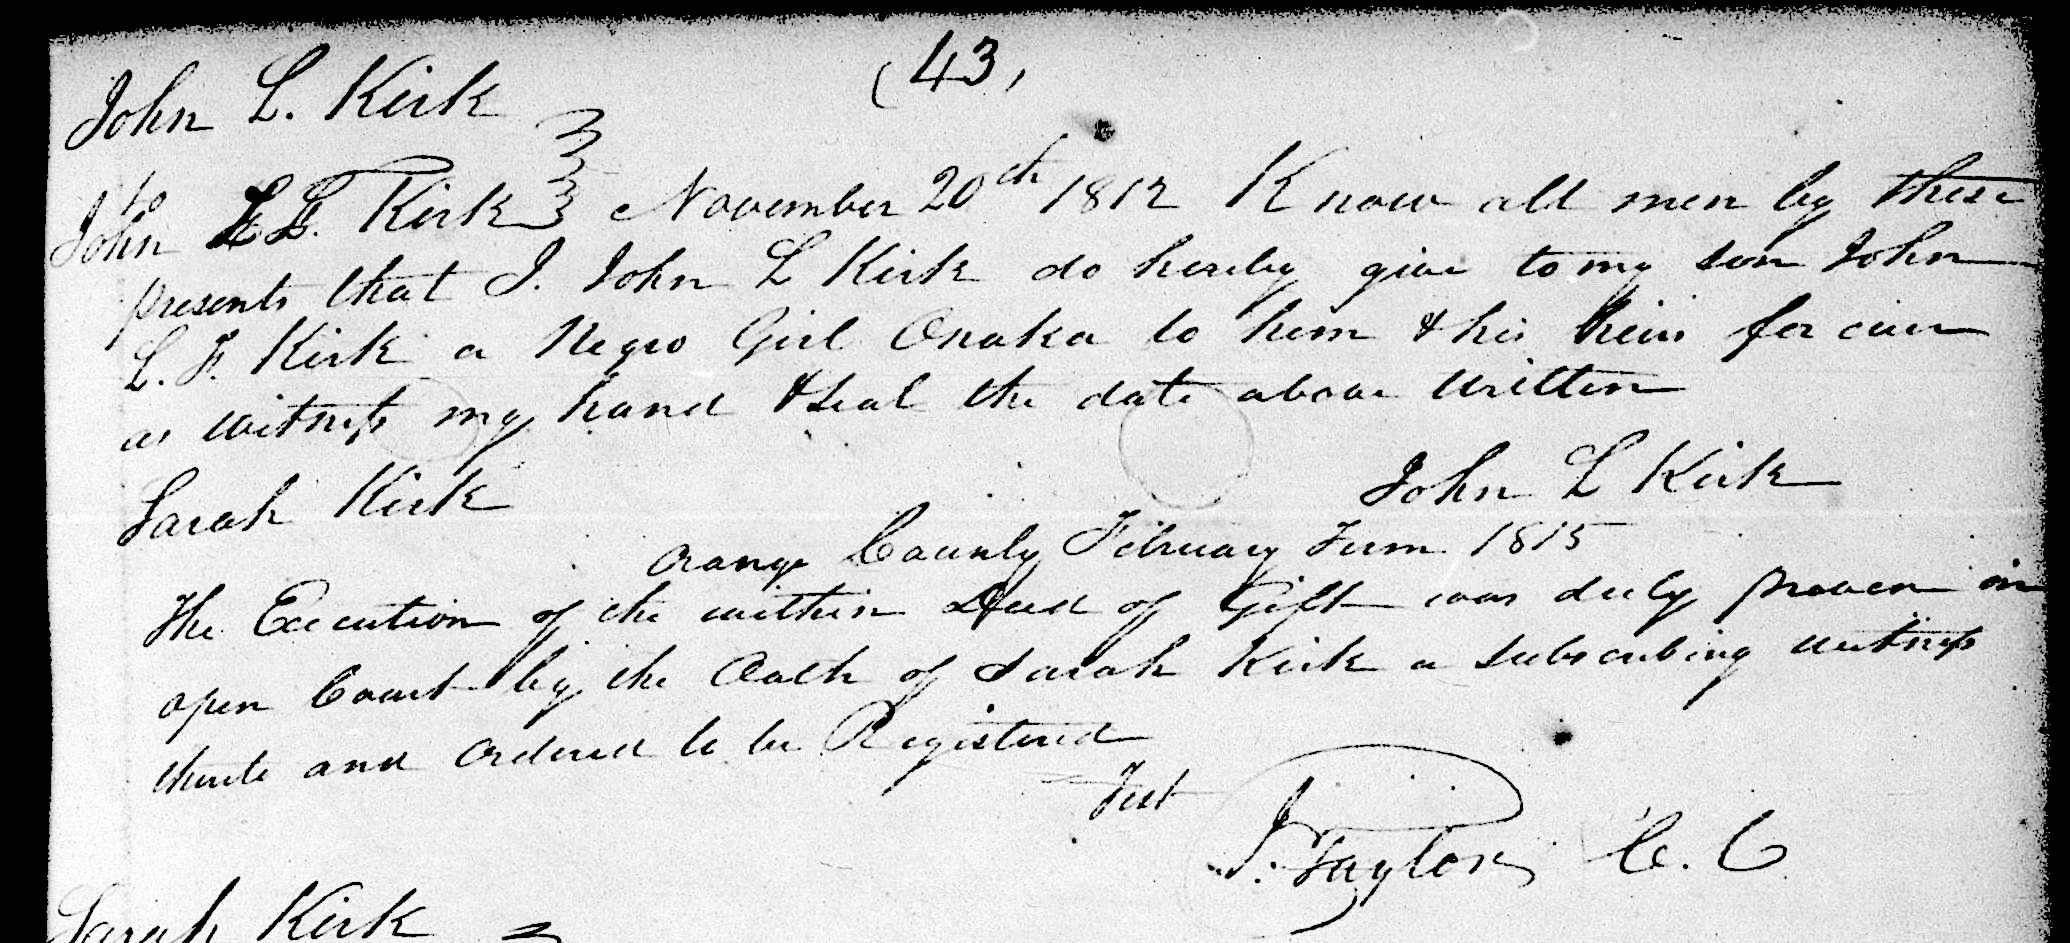 (43)
John L. Kirk
to
John L. F. Kirk November 20th 1812 Know all men by these
presents that I. John L Kirk do hereby give to my son John
L. F. Kirk a Negro Girl Onaka to him & his heirs for ever
as witness my hand & seal the date above written
Sarah Kirk John L Kirk
Orange County February Term 1815
The Execution of the within Deed of Gift was duly proven in
open Court by the Oath of Sarah Kirk a subscribing witness
thereto and ordered to be Registered
Test J. Taylor C. C
Sarah Kirk